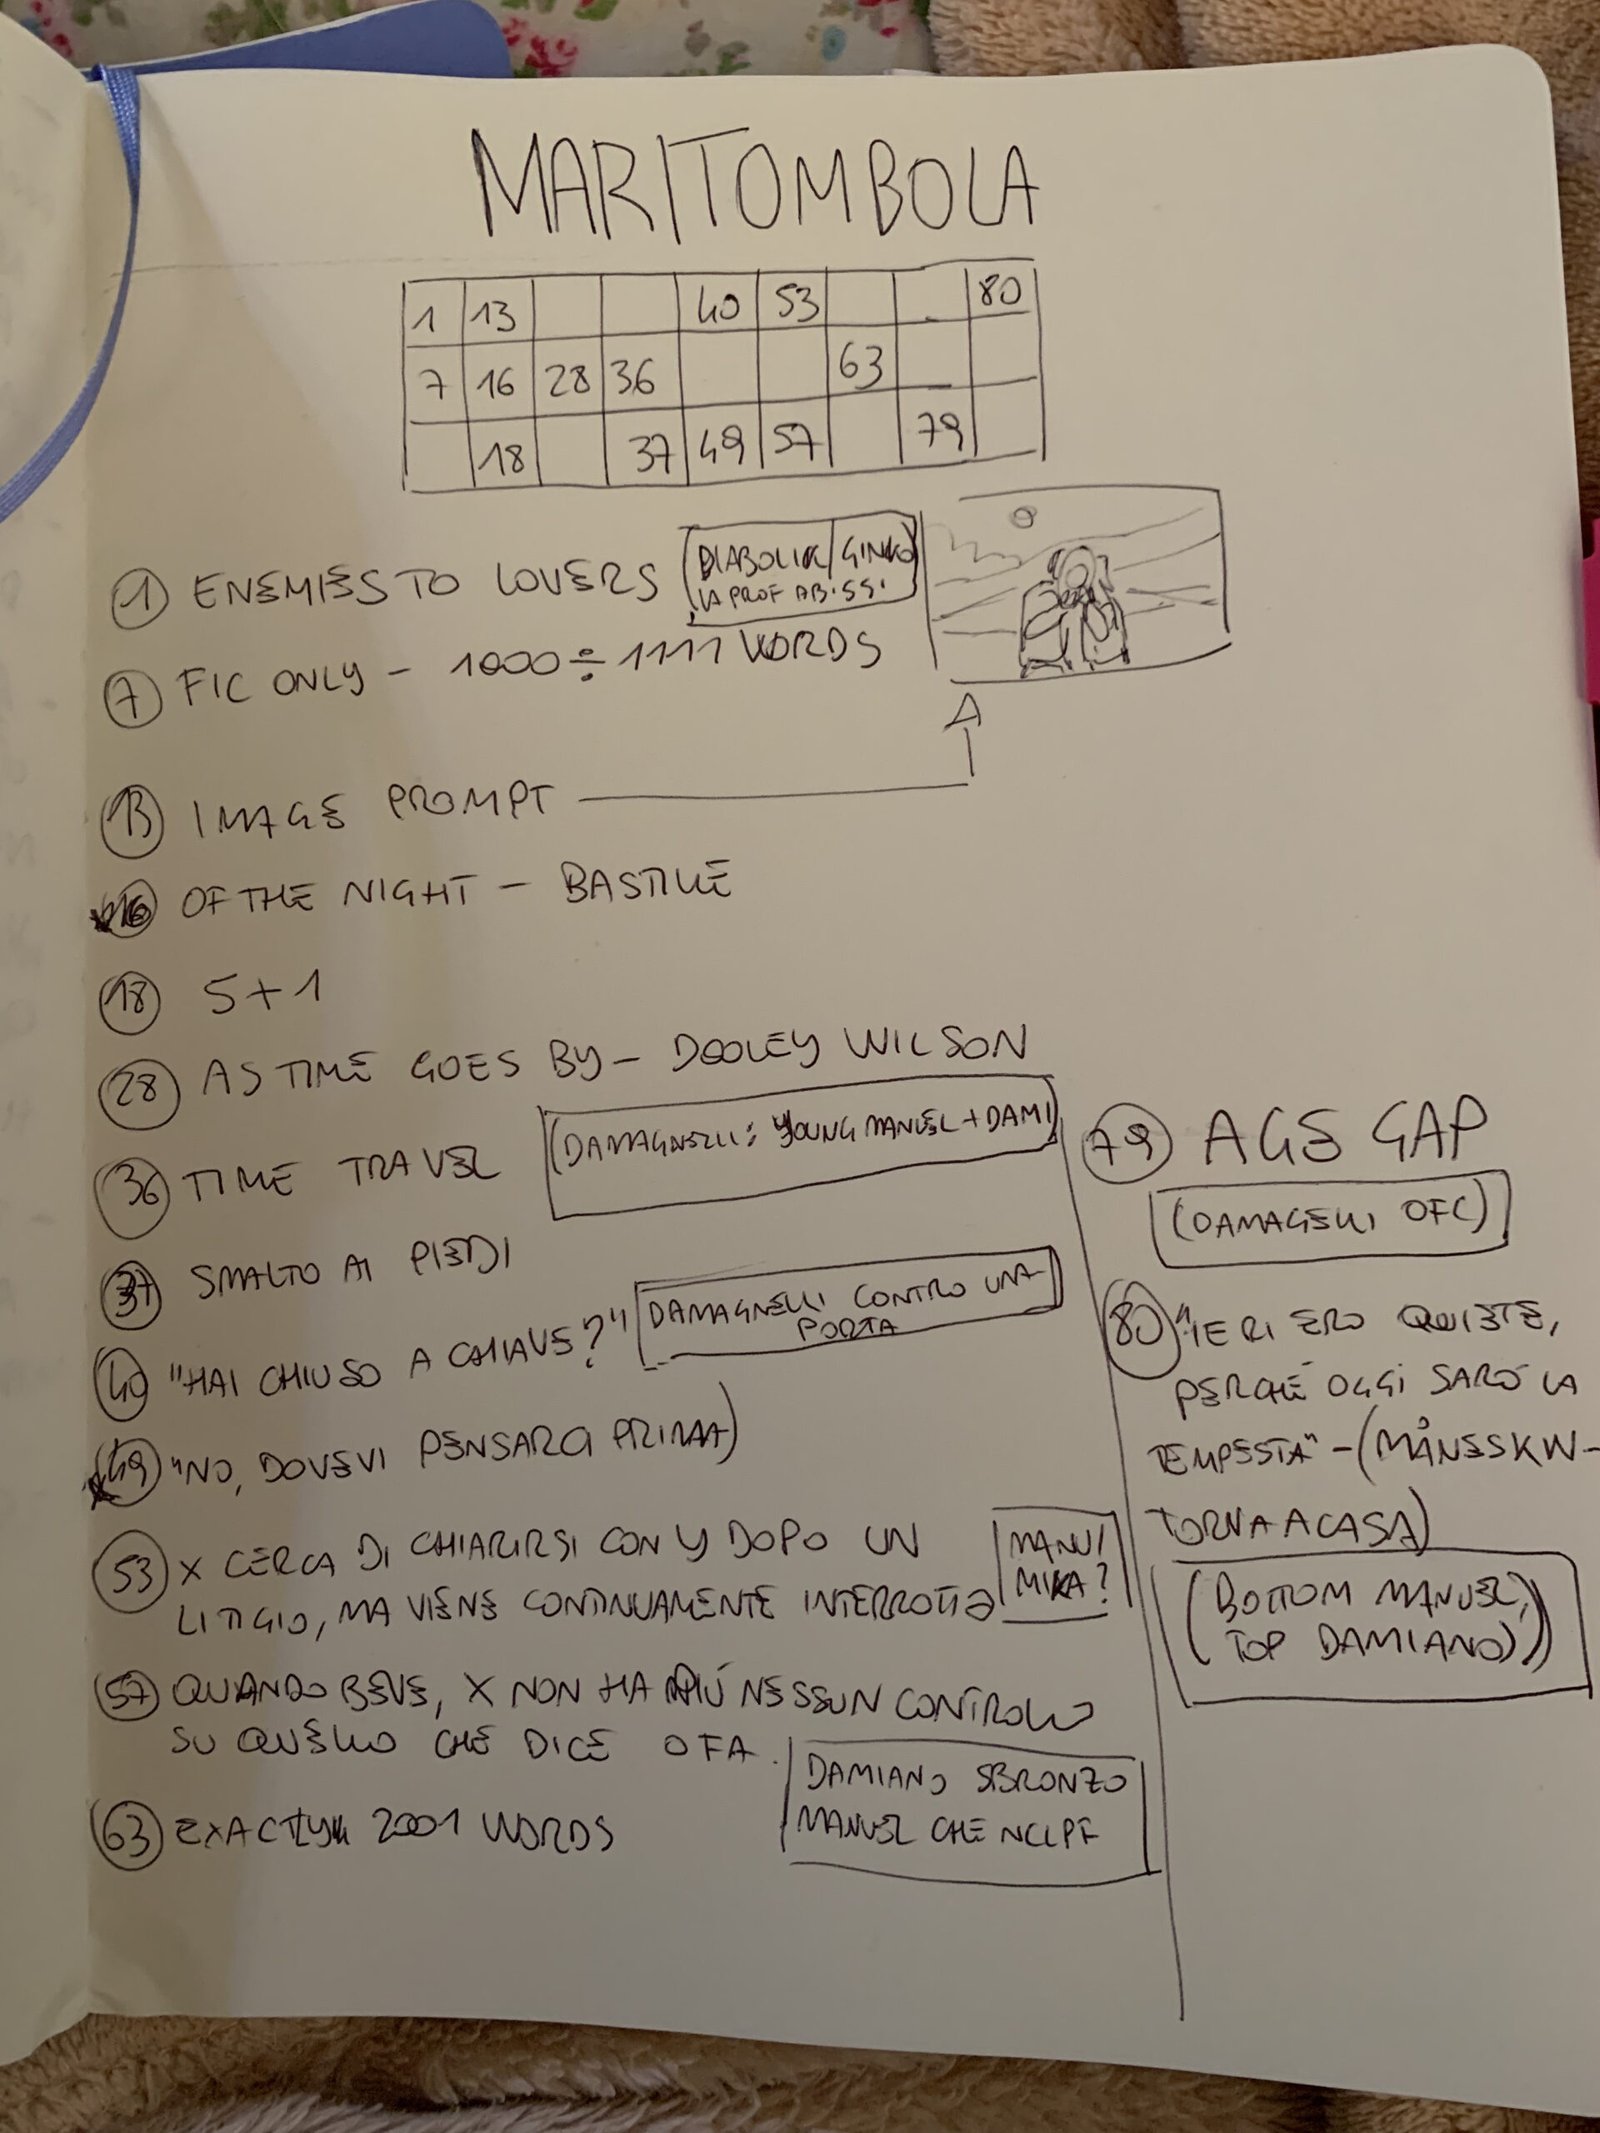 MARITOMBOLA
1 13 40 53 80
7 16 28 36 63
18 37 49 57 79
1 ENEMIES TO LOVERS (DIABOLIK/GINKO
LA PROF AB.SS.
7 FIC ONLY - 1000÷1111 WORDS
13 IMAGE PROMPT
16 OF THE NIGHT - BASTILLE
18 5+1
28 AS TIME GOES BY - DOOLEY WILSON
36 TIME TRAVEL (DAMAGNELLI: YOUNG MANUEL + DAMI)
37 SMALTO AI PIEDI
40 "HAI CHIUSO A CHIAVE?" DAMAGNELLI CONTRO UNA
PORTA
49 "NO, DOVEVI PENSARCI PRIMA)
53 X CERCA DI CHIARIRSI CON Y DOPO UN
LITIGIO, MA VIENE CONTINUAMENTE INTERROTTO
MANU/
MIKA?
57 QUANDO BEVE, X NON HA PIÚ NESSUN CONTROLLO
SU QUELLO CHE DICE O FA.
DAMIANO SBRONZO
MANUEL CHE NCLPF
63 EXACTLY 2001 WORDS
79 AGE GAP
(DAMAGELLI OFC)
80 "IERI ERO QUIETE,
PERCHÉ OGGI SARÒ LA
TEMPESTA" - (MÅNESKIN -
TORNA A CASA)
(BOTTOM MANUEL,
TOP DAMIANO))